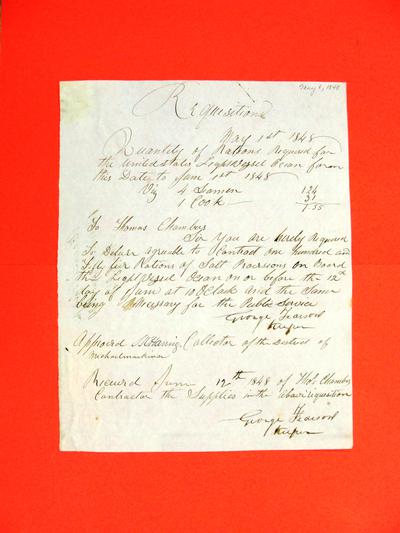 May 1, 1848
Requisition
May 1st 1848
Quantity of Rations Required for
the United States Light Vessel Ocean from
this Date to June 1st 1848
Viz 4 Seamen 124
1 Cook 31
155
To Thomas Chambers
Sir You are hereby Required
To Deliver agreable to Contract one hundred and
fifty five Rations of Salt on Board
the Light Vessel Ocean on or before the 12th
day of June at 10 oClock and the Same
being Necessary for the Public Service
George Pearson
Keeper
Approved Collector of the District of
Michilimackinac
Received June 12th 1848 of Thos Chambers
Contractor the Supplies in the above requisition
George Pearson
Keeper